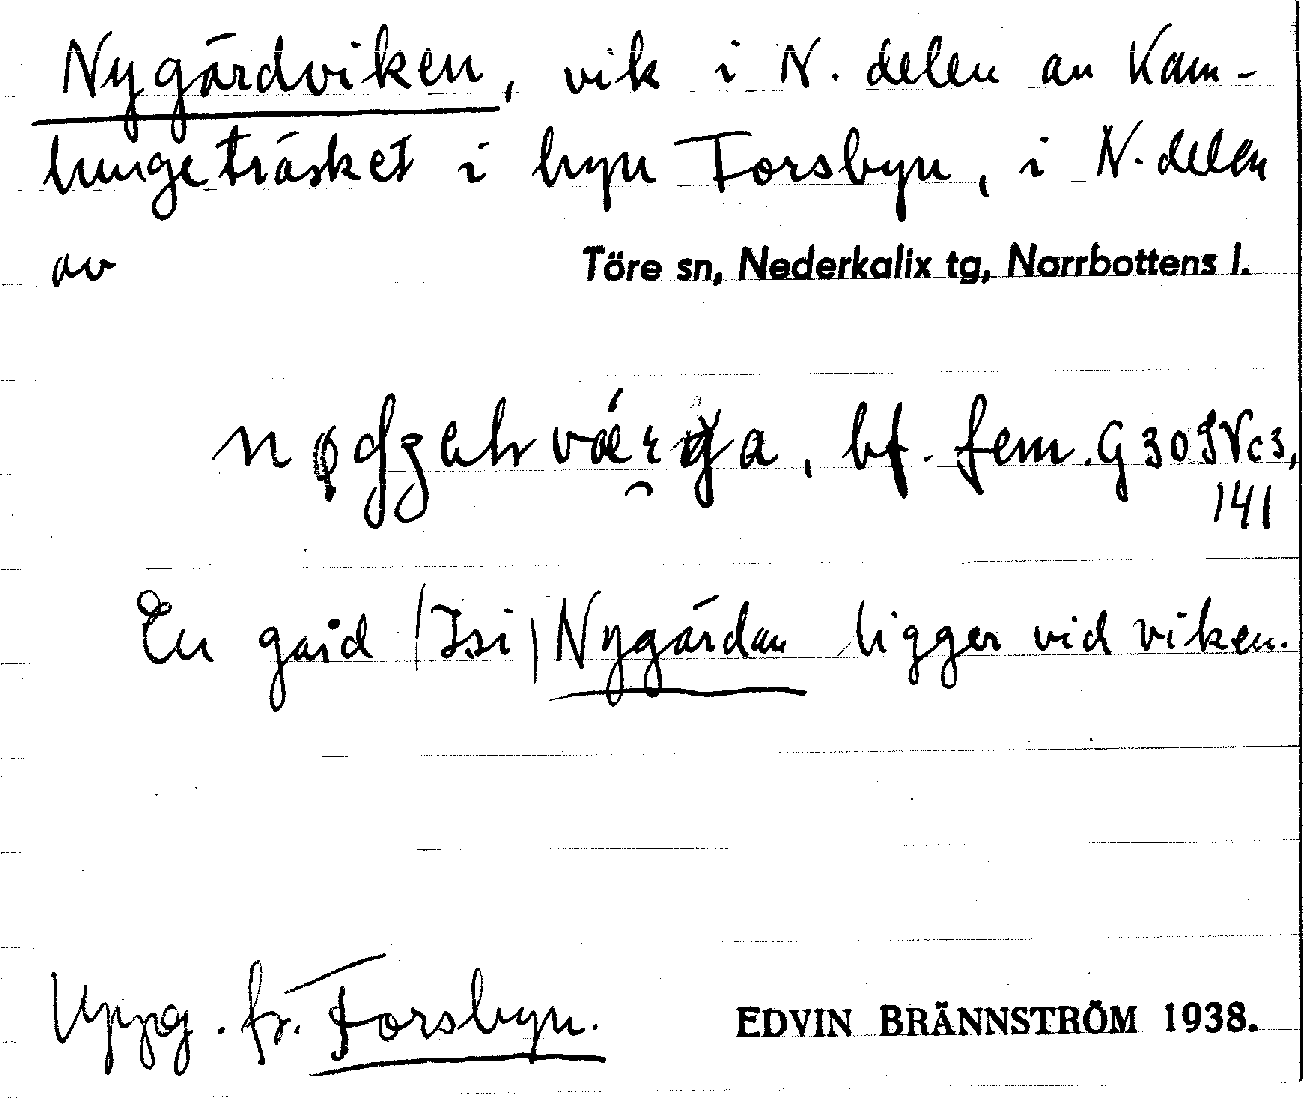 Nygårdviken, vik i N. delen av Kam-
lungeträsket i byn Forsbyn, i N. delen
av Töre sn, Nederkalix tg, Norrbottens l.
bf. fem. G 30 IVc3,
141
En gård (Isi) Nygårdan ligger vid viken.
Uppg. fr. Forsbyn. EDVIN BRÄNNSTRÖM 1938.